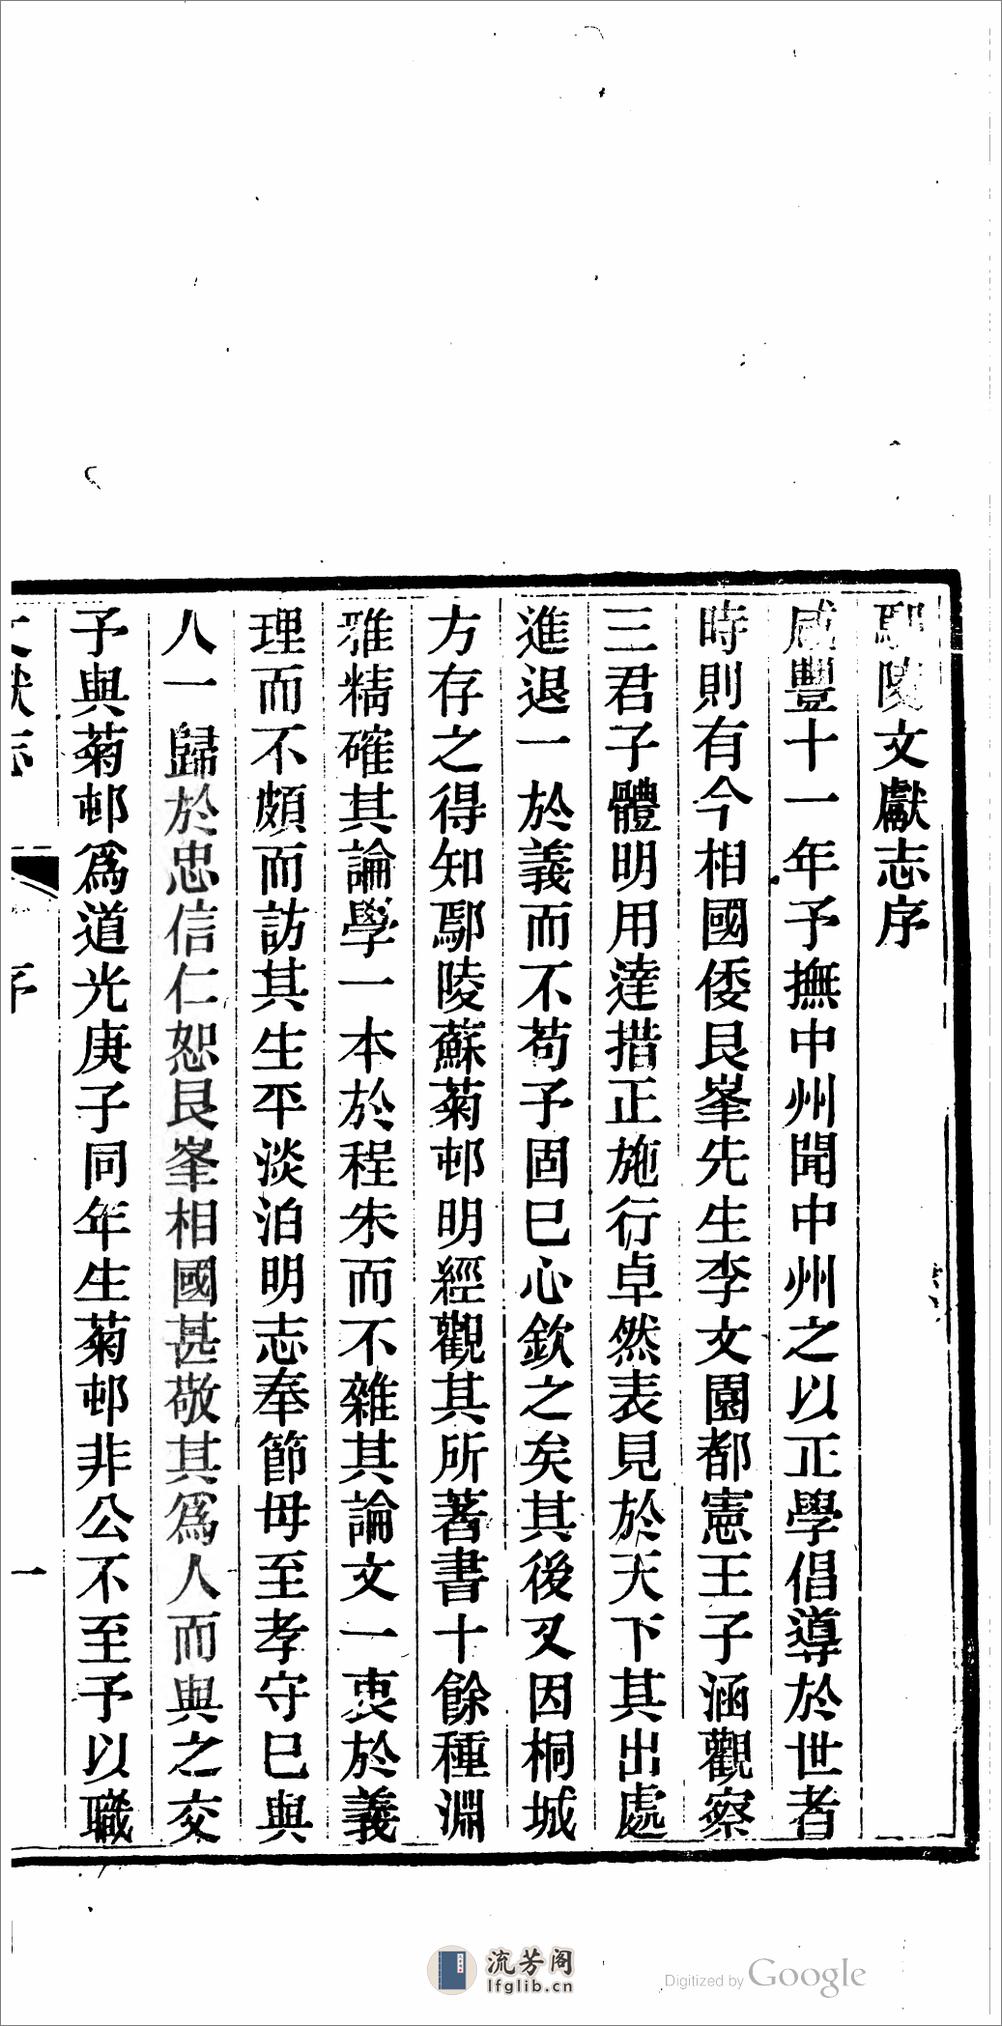 鄢陵文獻志序
咸豐十一年予撫中州聞中州之以正學倡導於世者
時則有今相國倭艮峯先生李文園都憲王子涵觀察
三君子體明用達措正施行卓然表見於天下其出處
進退一於義而不苟予固已心欽之矣其後又因桐城
方存之得知鄢陵蘇菊邨明經觀其所著書十餘種淵
雅精確其論學一本於程朱而不雜其論文一衷於義
理而不頗而訪其生平淡泊明志奉節母至孝守己與
人一歸於忠信仁恕艮峯相國甚敬其爲人而與之交
予與菊邨爲道光庚子同年生菊邨非公不至予以職
文獻志 序 一
流芳阁
lfglib.cn
Digitized by Google